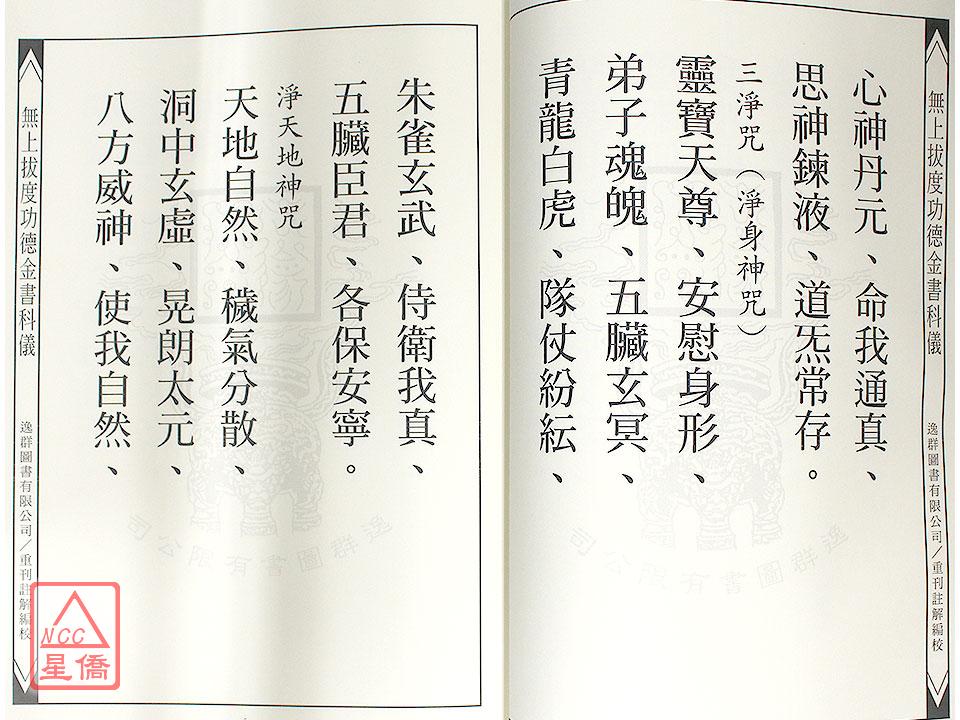 無上拔度功德金書科儀
逸群圖書有限公司／重刊註解編校
心神丹元、命我通真、
思神鍊液、道炁常存。
三淨咒（淨身神咒）
靈寶天尊、安慰身形、
弟子魂魄、五臟玄冥、
青龍白虎、隊仗紛紜、
逸群圖書有限公司
朱雀玄武、侍衛我真、
五臟臣君、各保安寧。
淨天地神咒
天地自然、穢氣分散、
洞中玄虛、晃朗太元、
八方威神、使我自然、
逸群圖書有限公司
無上拔度功德金書科儀
逸群圖書有限公司／重刊註解編校
NCC
星僑